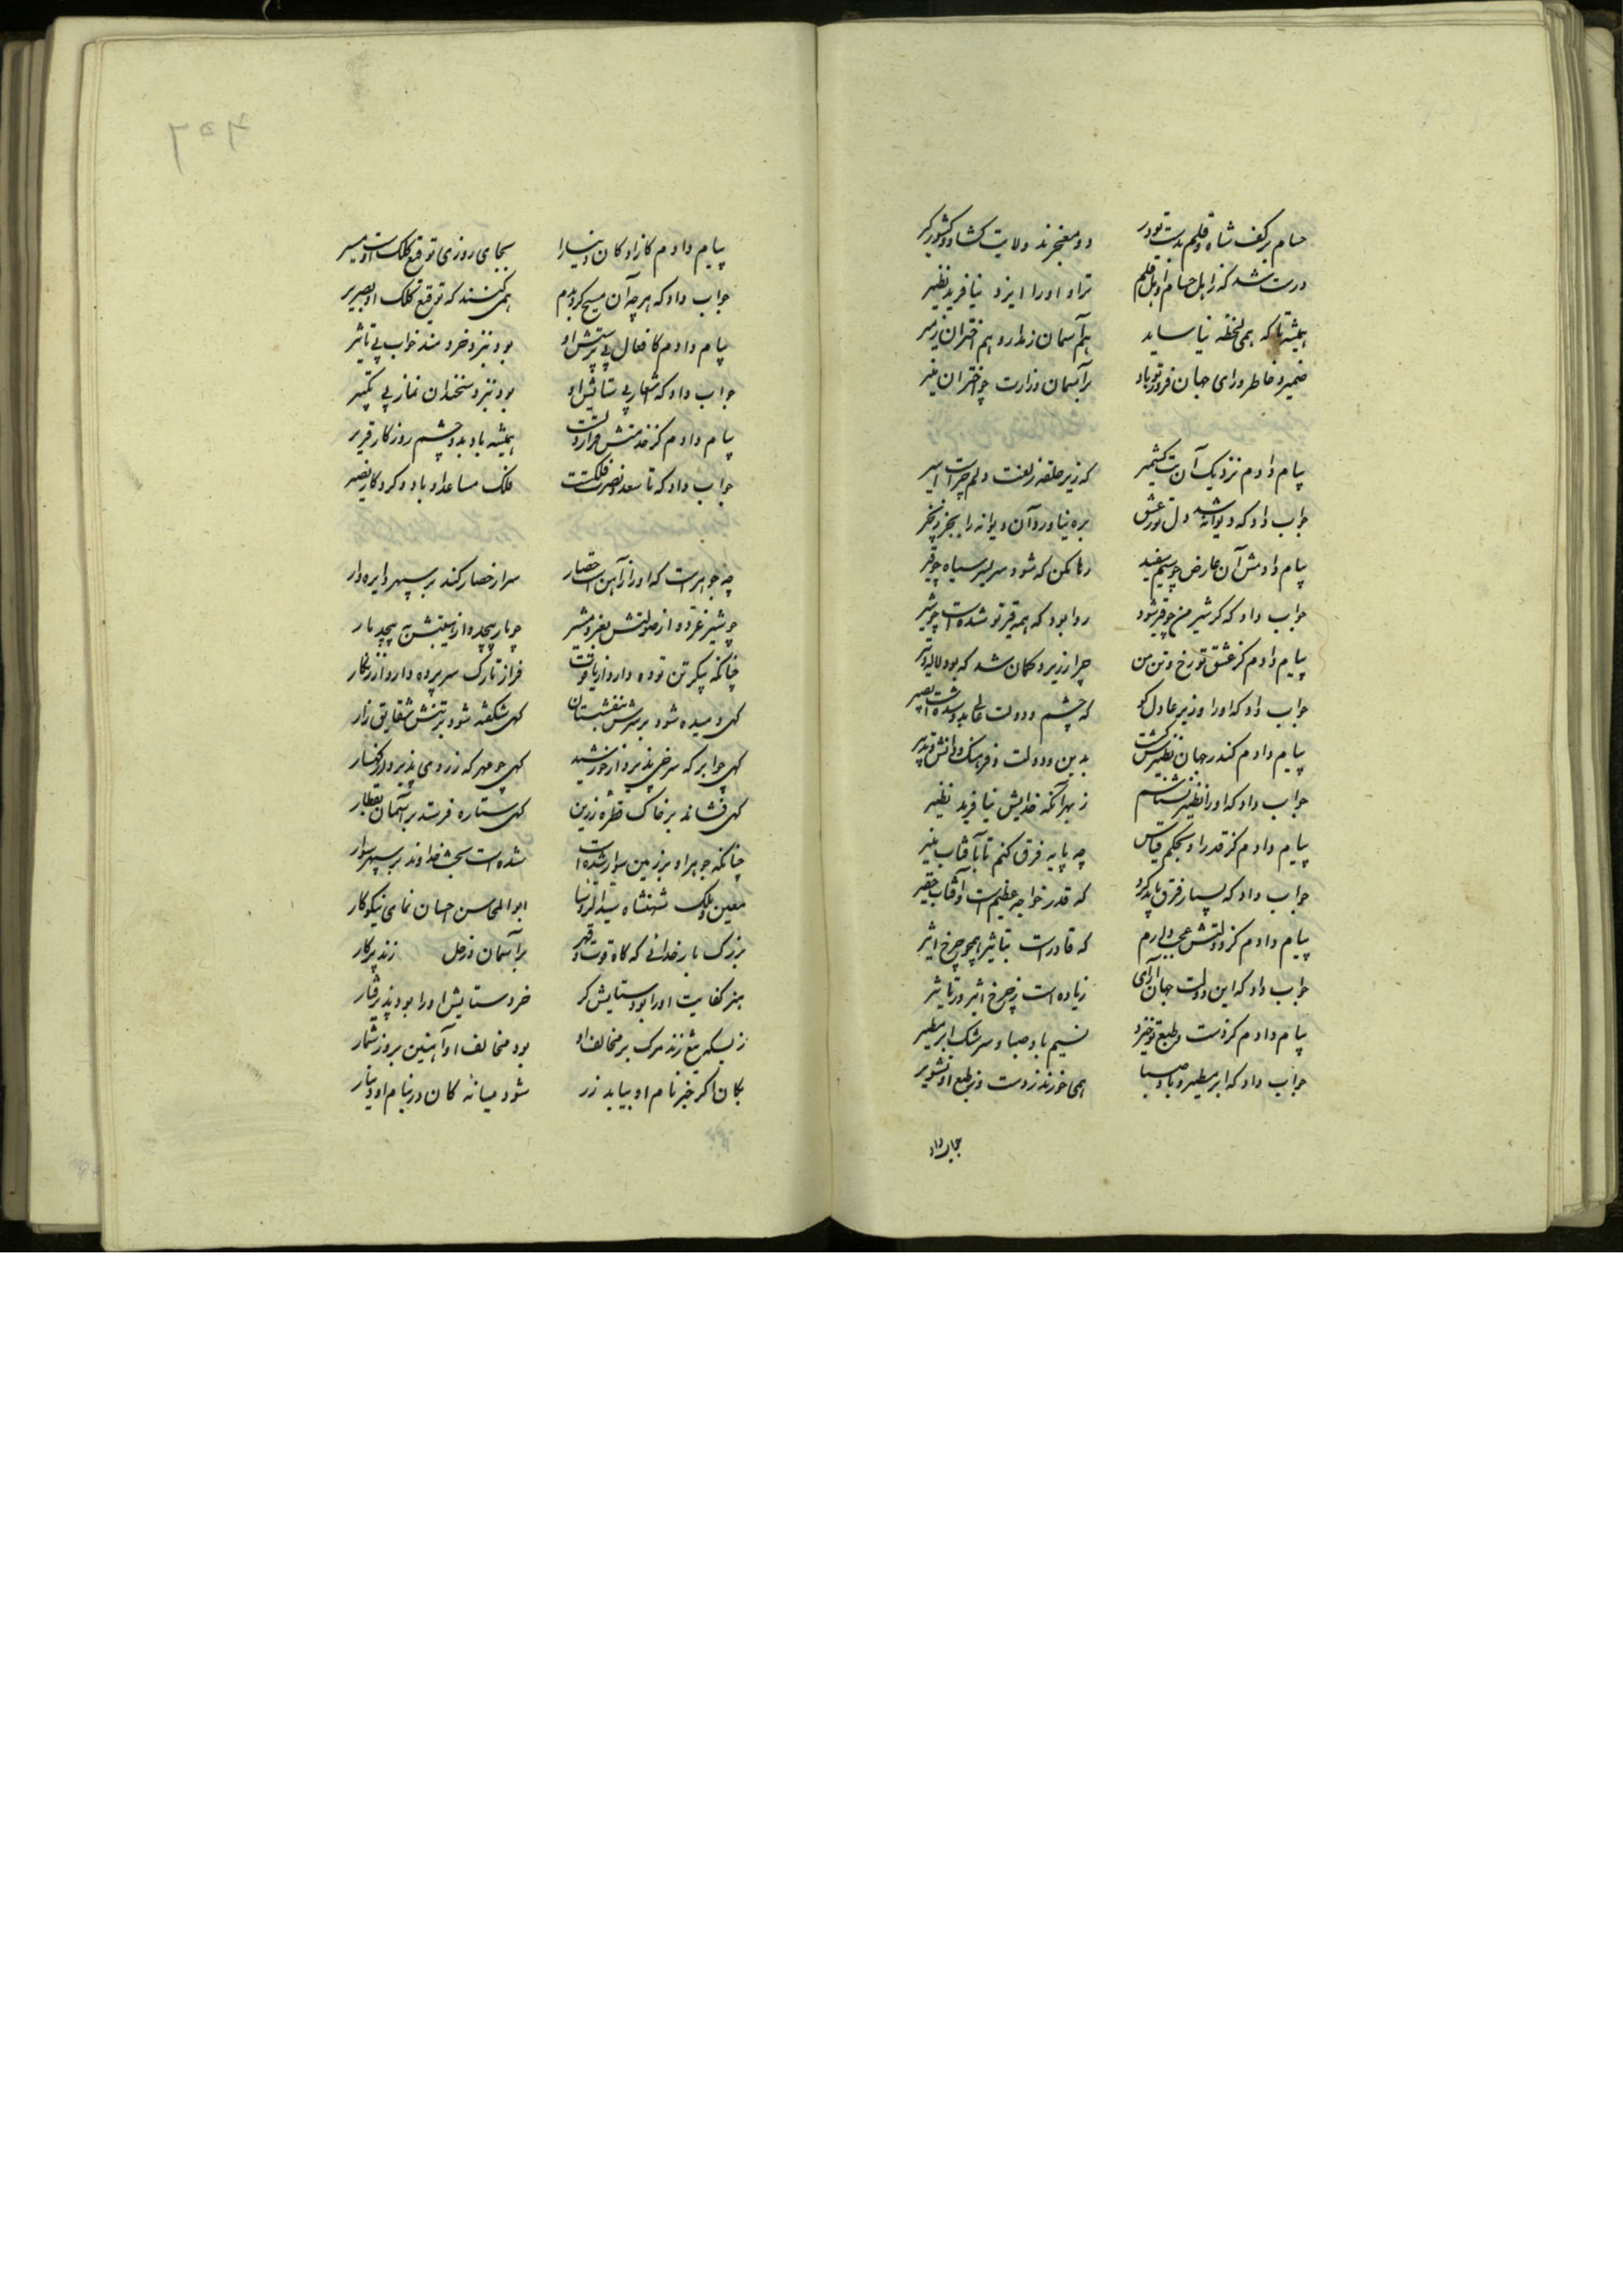 حسام بر کف شاه و قلم بدست تو در    دو معجزند ولایت کشاد و کشور کیر
درست شد که ز اهل حسام و اهل قلم    ترا و او را ایزد نیافرید نظیر
همیشه تا که همی لحظه نیاساید    هم آسمان ز مدار و هم اختران ز مسیر
ضمیر و خاطر و رای جهان فروز تو باد    بر آسمان وزارت چو اختران منیر
پیام دادم نزدیک آن بت کشمیر    که زیر حلقه زلفت دلم چراست اسیر
جواب داد که دیوانه شد دل تو ز عشق    بره نیاورد آن دیوانه را بجز زنجیر
پیام دادمش آن عارض چو سیم سفید    رها مکن که شود سر بسر سیاه چو قیر
جواب داد که کر شیر من چو قیر شود    روا بود که همه قیر تو شده است چو شیر
پیام دادم کز عشق تو رخ و تن من    چرا زریر و کمان شد که بود لاله و تیر
جواب داد که او را وزیر عادل کو    که چشم دولت عالی بدو شده است بصیر
پیام دادم کندر جهان نظیرش کیست    بدین و دولت و فرهنک و دانش و تدبیر
جواب داد که او را نظیر نشناسم    ز بهر آنکه خدایش نیافرید نظیر
پیام دادم کز قدر او بحکم قیاس    چه پایه فرق کنم تا بآفتاب منیر
جواب داد که بسیار فرق باید کرد    که قدر خواجه عظیم است و آفتاب حقیر
پیام دادم کز دولتش عجب دارم    که قادرست بتاثیر همچو چرخ اثیر
جواب داد که این دولت جهان آرای    زیاده است ز چرخ اثیر در تاثیر
پیام دادم کز دست و طبع او خیزد    نسیم باد صبا و سرشک ابر مطیر
جواب داد که ابر مطیر و باد صبا    همی خورند ز دست و ز طبع او تشویر
جواب داد
پیام دادم کازادکان دنیا را    بجای روزی توقیع کلک اوست مسیر
جواب داد که هرچه آن مسیح کرد بدم    همی کنند که توقیع کلک او بصریر
پیام دادم کافعال بی پرستش او    بود بنزد خردمند خواب بی تاثیر
جواب داد که اشعار بی ستایش او    بود بنزد سخندان نماز بی تکبیر
پیام دادم کز خدمتش مراد دلست    همیشه باد بدو چشم روزکار قریر
جواب داد که تا سعد و نصرت فلکست    فلک مساعد او باد و کردکار نصیر
چه جوهرست که او را ز آهن است حصار    سر از حصار کند بر سپهر دایره دار
چو شیر غرد و از صولتش بغرد شیر    چو مار پیچد و از هیبتش به پیچد مار
چنانکه پیکر تن توده دارد از یاقوت    فراز تارک سر پرده دارد از زنکار
کهی دمیده شود بر سرش بنفشبستان    کهی شکفته شود بر تنش شقایق زار
کهی چو ابر که سرخی پذیرد از خورشید    کهی چو مهر که زردی پذیرد از کهسار
کهی فشاند بر خاک قطره زرین    کهی ستاره فرستد بر آسمان بقطار
چنانکه جوهر او بر زمین سوار شده است    شده است بخت خداوند بر سپهر سوار
معین ملک شهنشاه سید الرؤسا    ابو المحاسن احسان نمای نیکو کار
بزرک بار خدائی که کاه قوت و قهر    بر آسمان زحل زند پرکار
هنر کفایت او را بود ستایش کر    خرد ستایش او را بود پذیرفتار
ز بسکه تیغ زند مرک بر مخالف او    بود مخالف او آهنین بروز شمار
بکان اکر خبر نام او بیابد زر    شود میانه کان در بنام او دینار